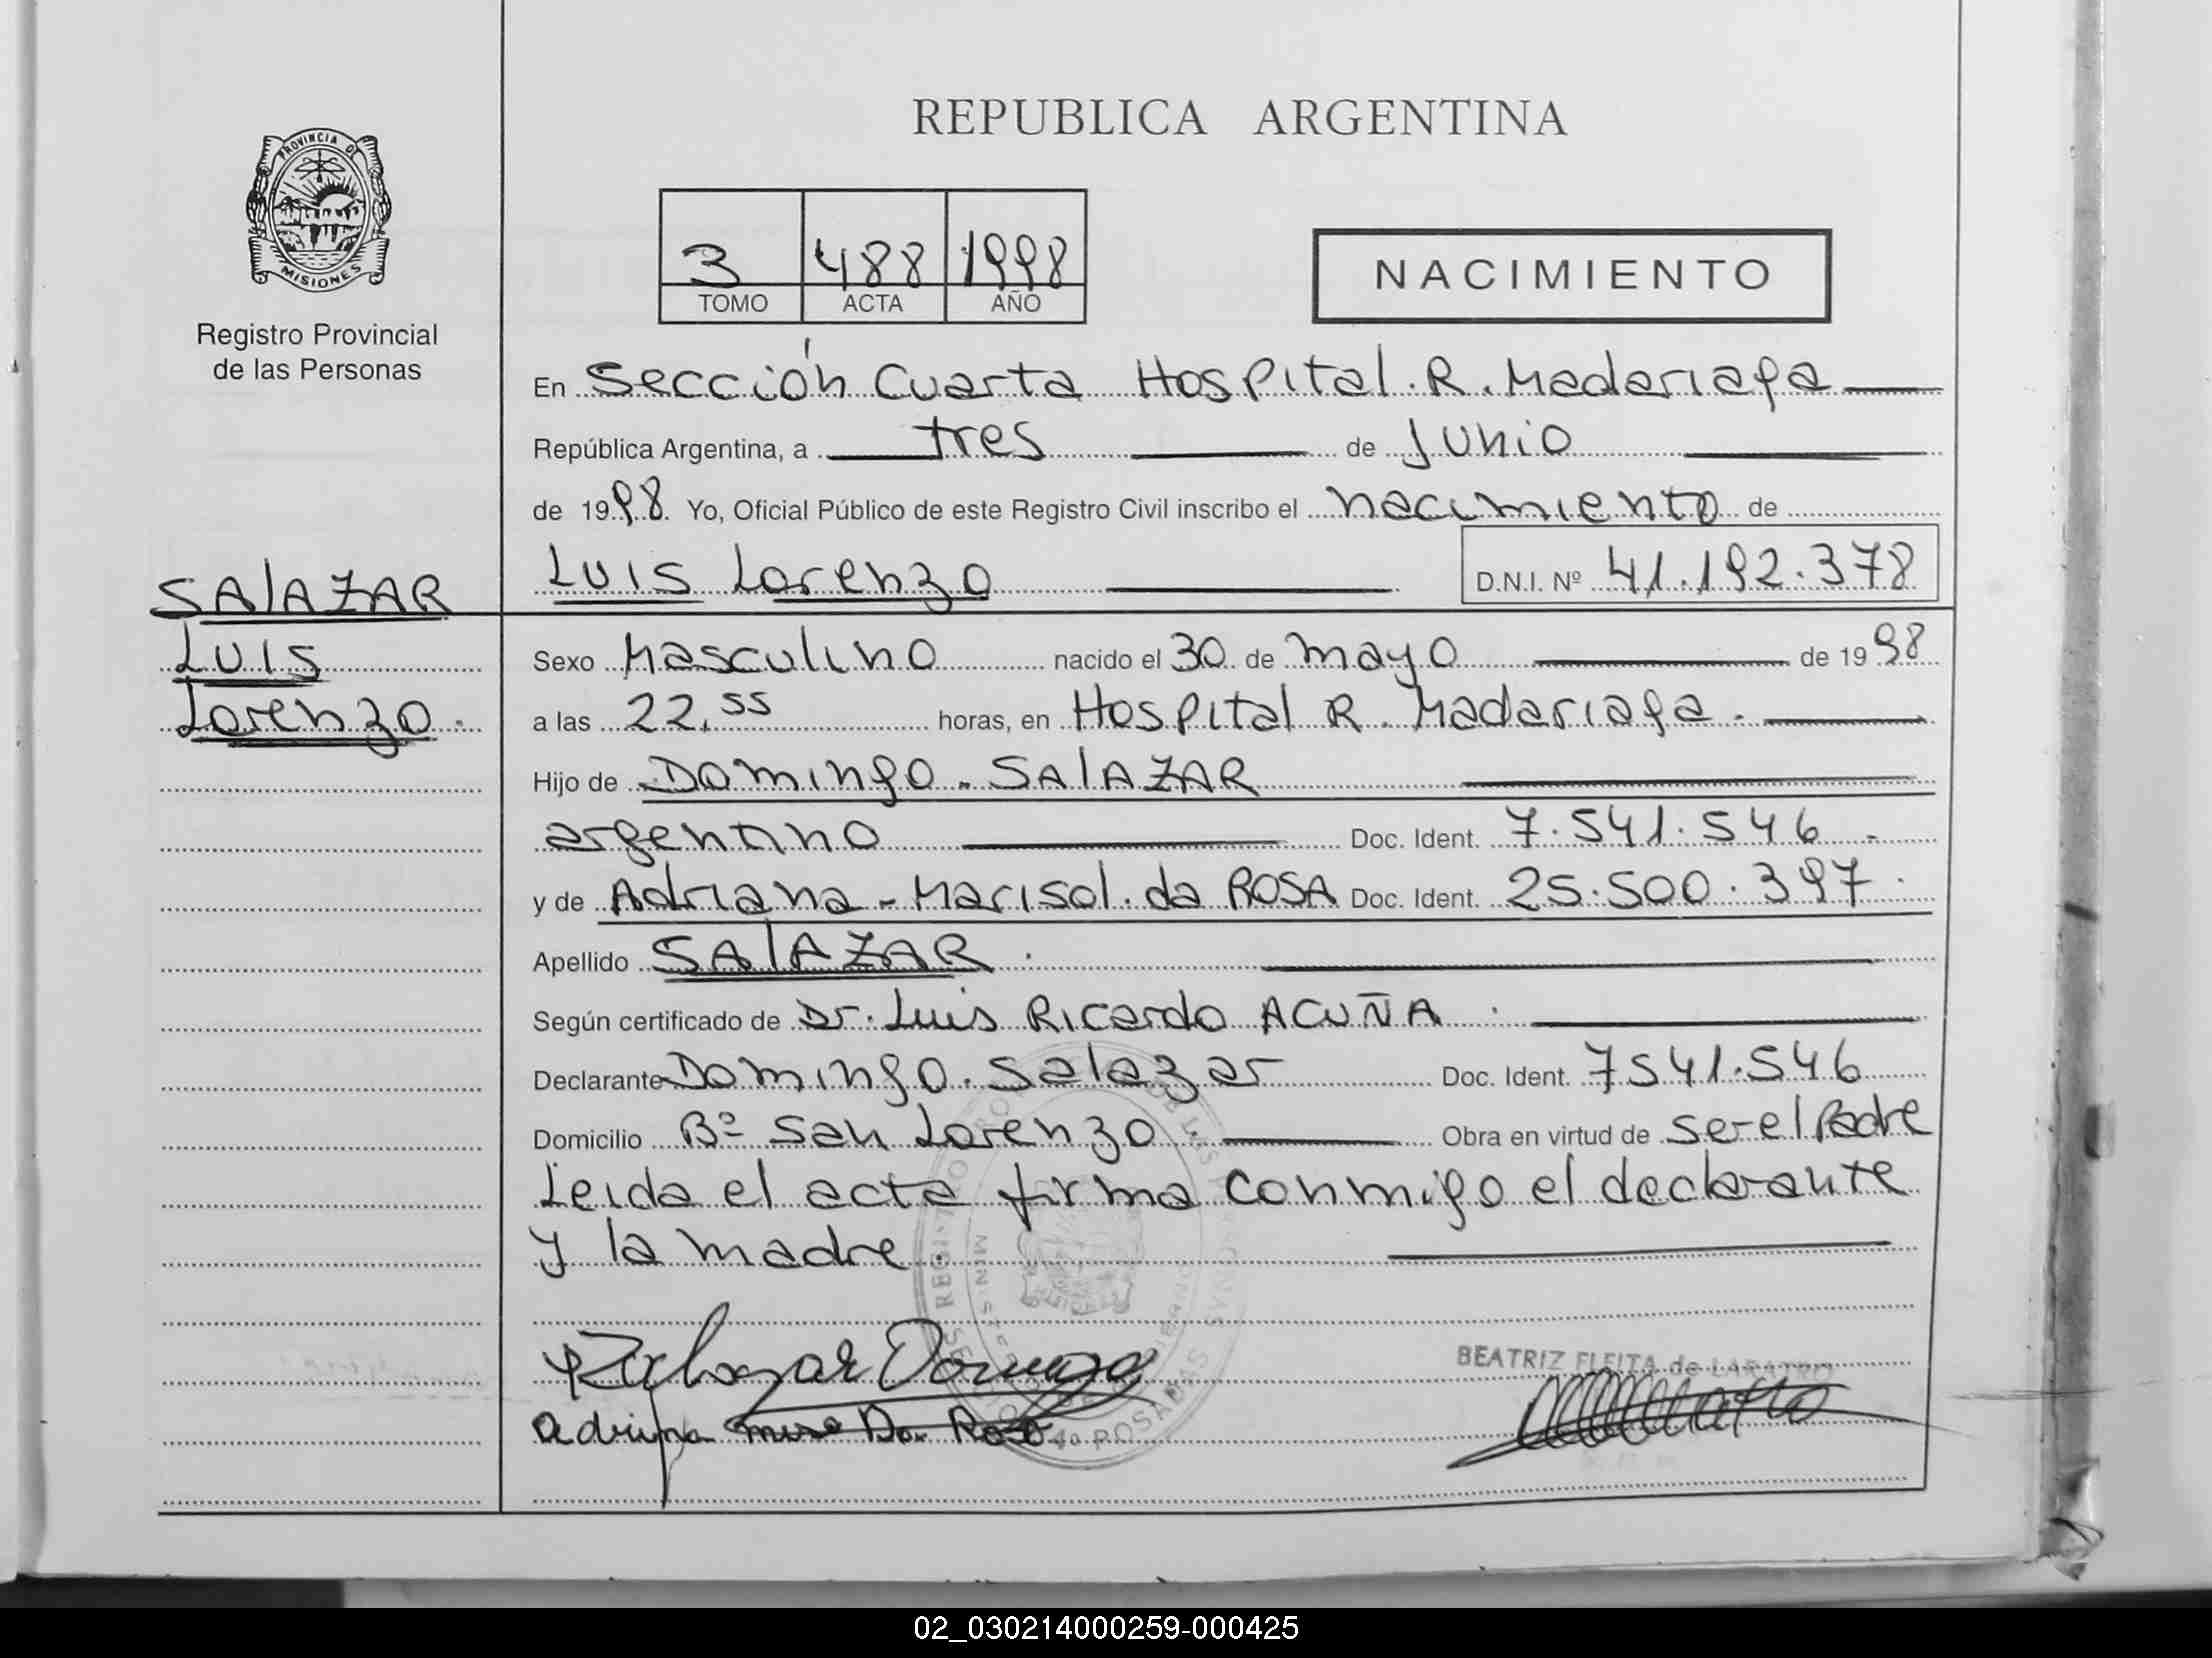 REPUBLICA ARGENTINA
PROVINCIA DE
MISIONES
Registro Provincial
de las Personas
3 488 1998
TOMO ACTA AÑO
NACIMIENTO
En Sección Cuarta Hospital R. Madariaga
República Argentina, a tres de Junio
de 1998 Yo, Oficial Público de este Registro Civil inscribo el nacimiento de
Luis Lorenzo D.N.I. Nº 41.192.378
SALAZAR
Luis
Lorenzo.
Sexo Masculino nacido el 30 de mayo de 1998
a las 22,55 horas, en Hospital R. Madariaga.
Hijo de Domingo - SALAZAR
argentino Doc. Ident. 7.541.546 -
y de Adriana - Marisol. da ROSA Doc. Ident. 25.500.397.
Apellido SALAZAR.
Según certificado de Dr. Luis Ricardo ACUÑA.
Declarante Domingo. Salazar Doc. Ident. 7541.546
Domicilio Bº San Lorenzo Obra en virtud de ser el Padre
Leida el acta firma conmigo el declarante
y la madre.
Salazar Domingo
BEATRIZ FLEITA de LARATRO
Da Rosa
4º POSADAS
02_030214000259-000425